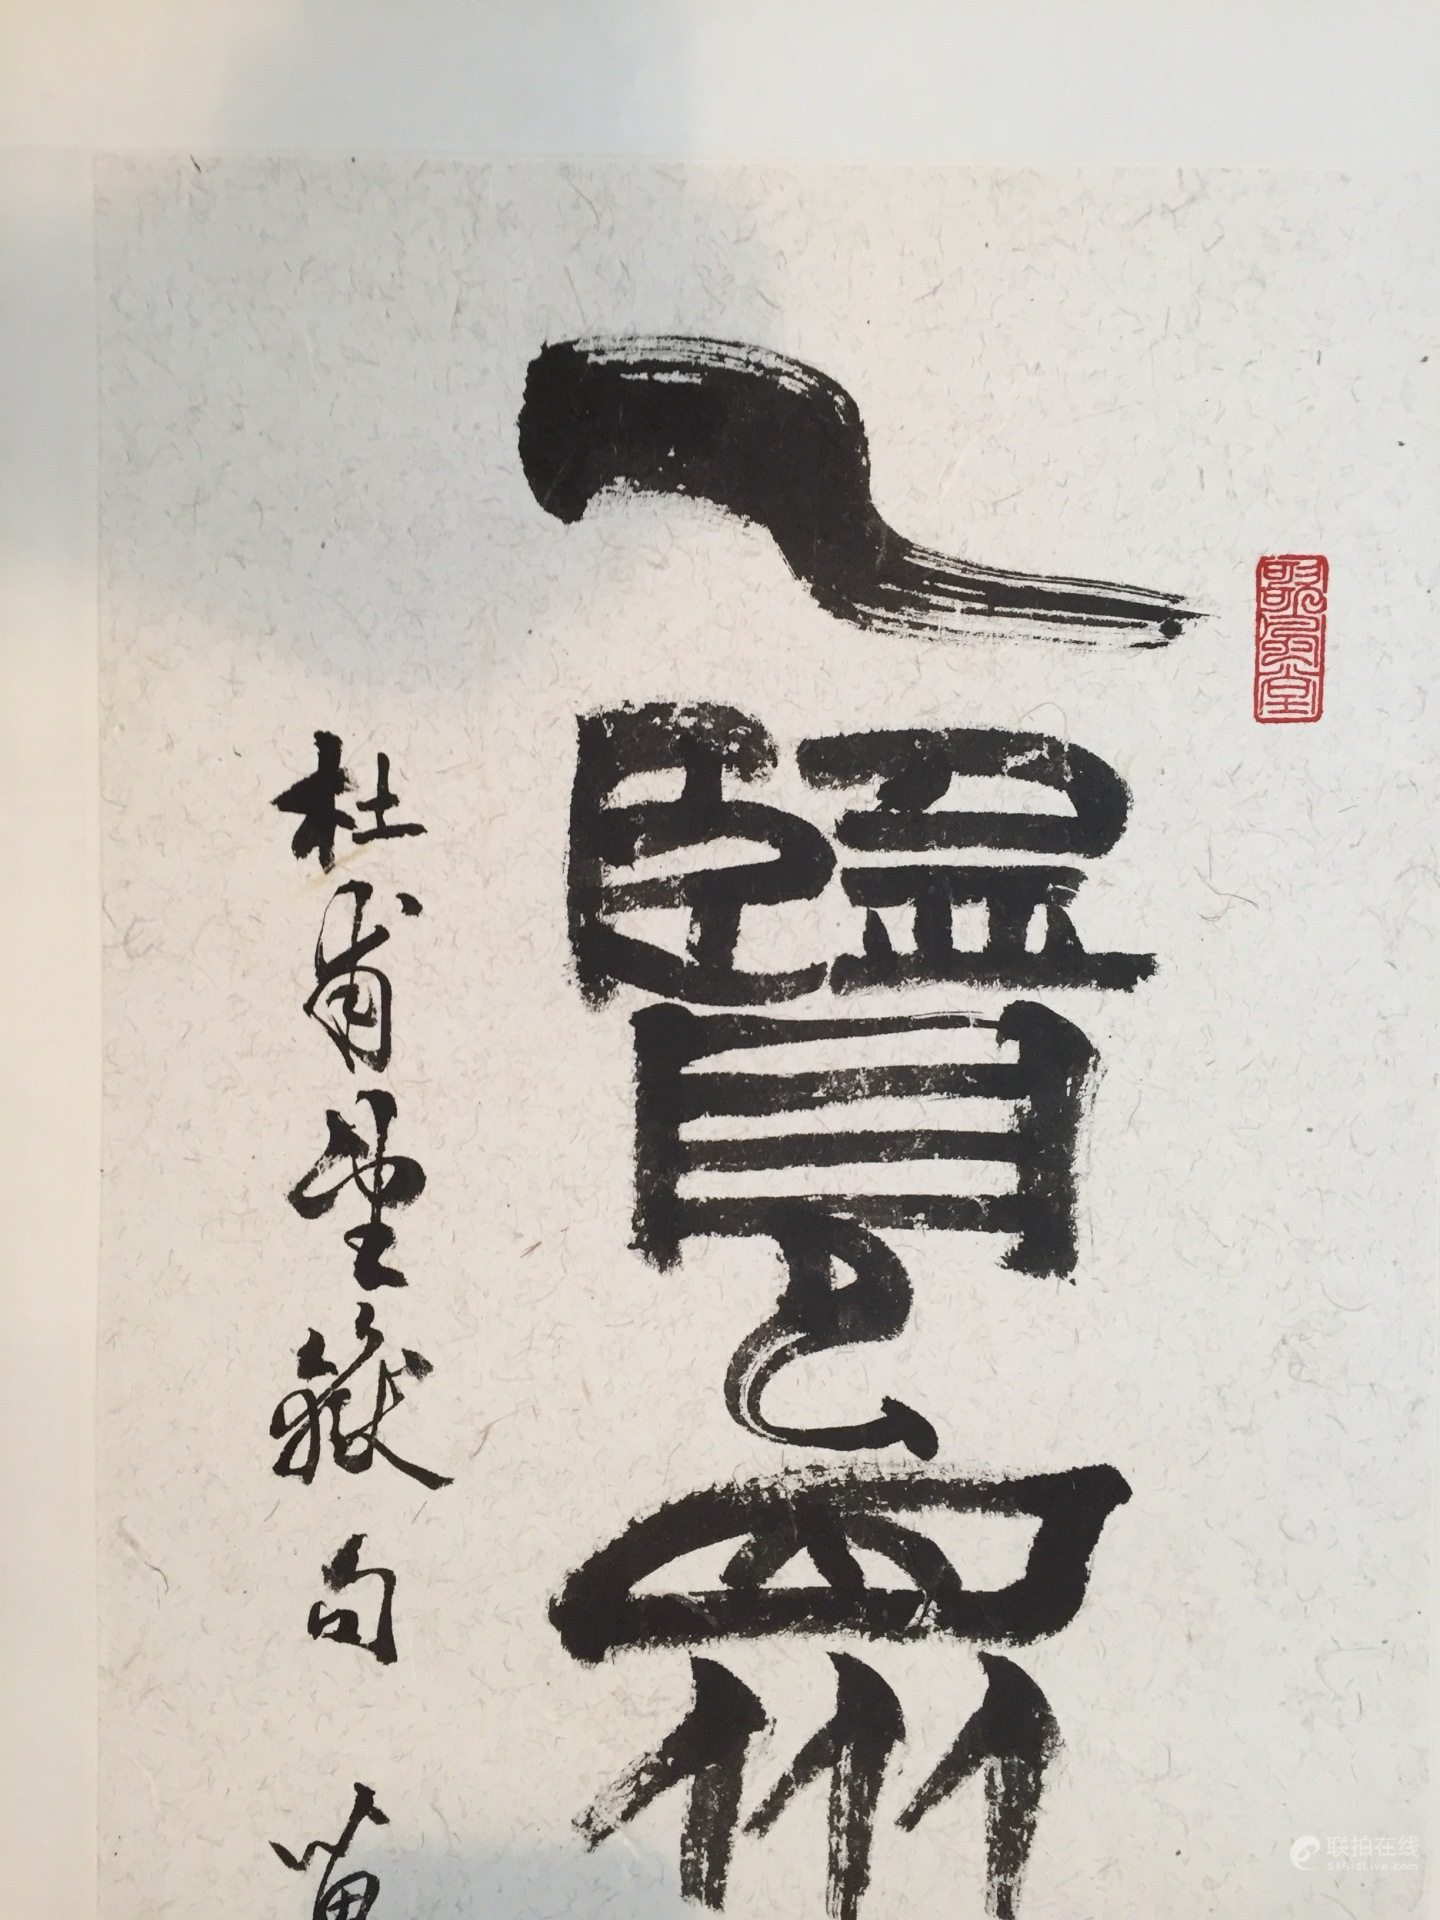 一覽眾
杜甫望嶽句
联拍在线
51bidLive.com